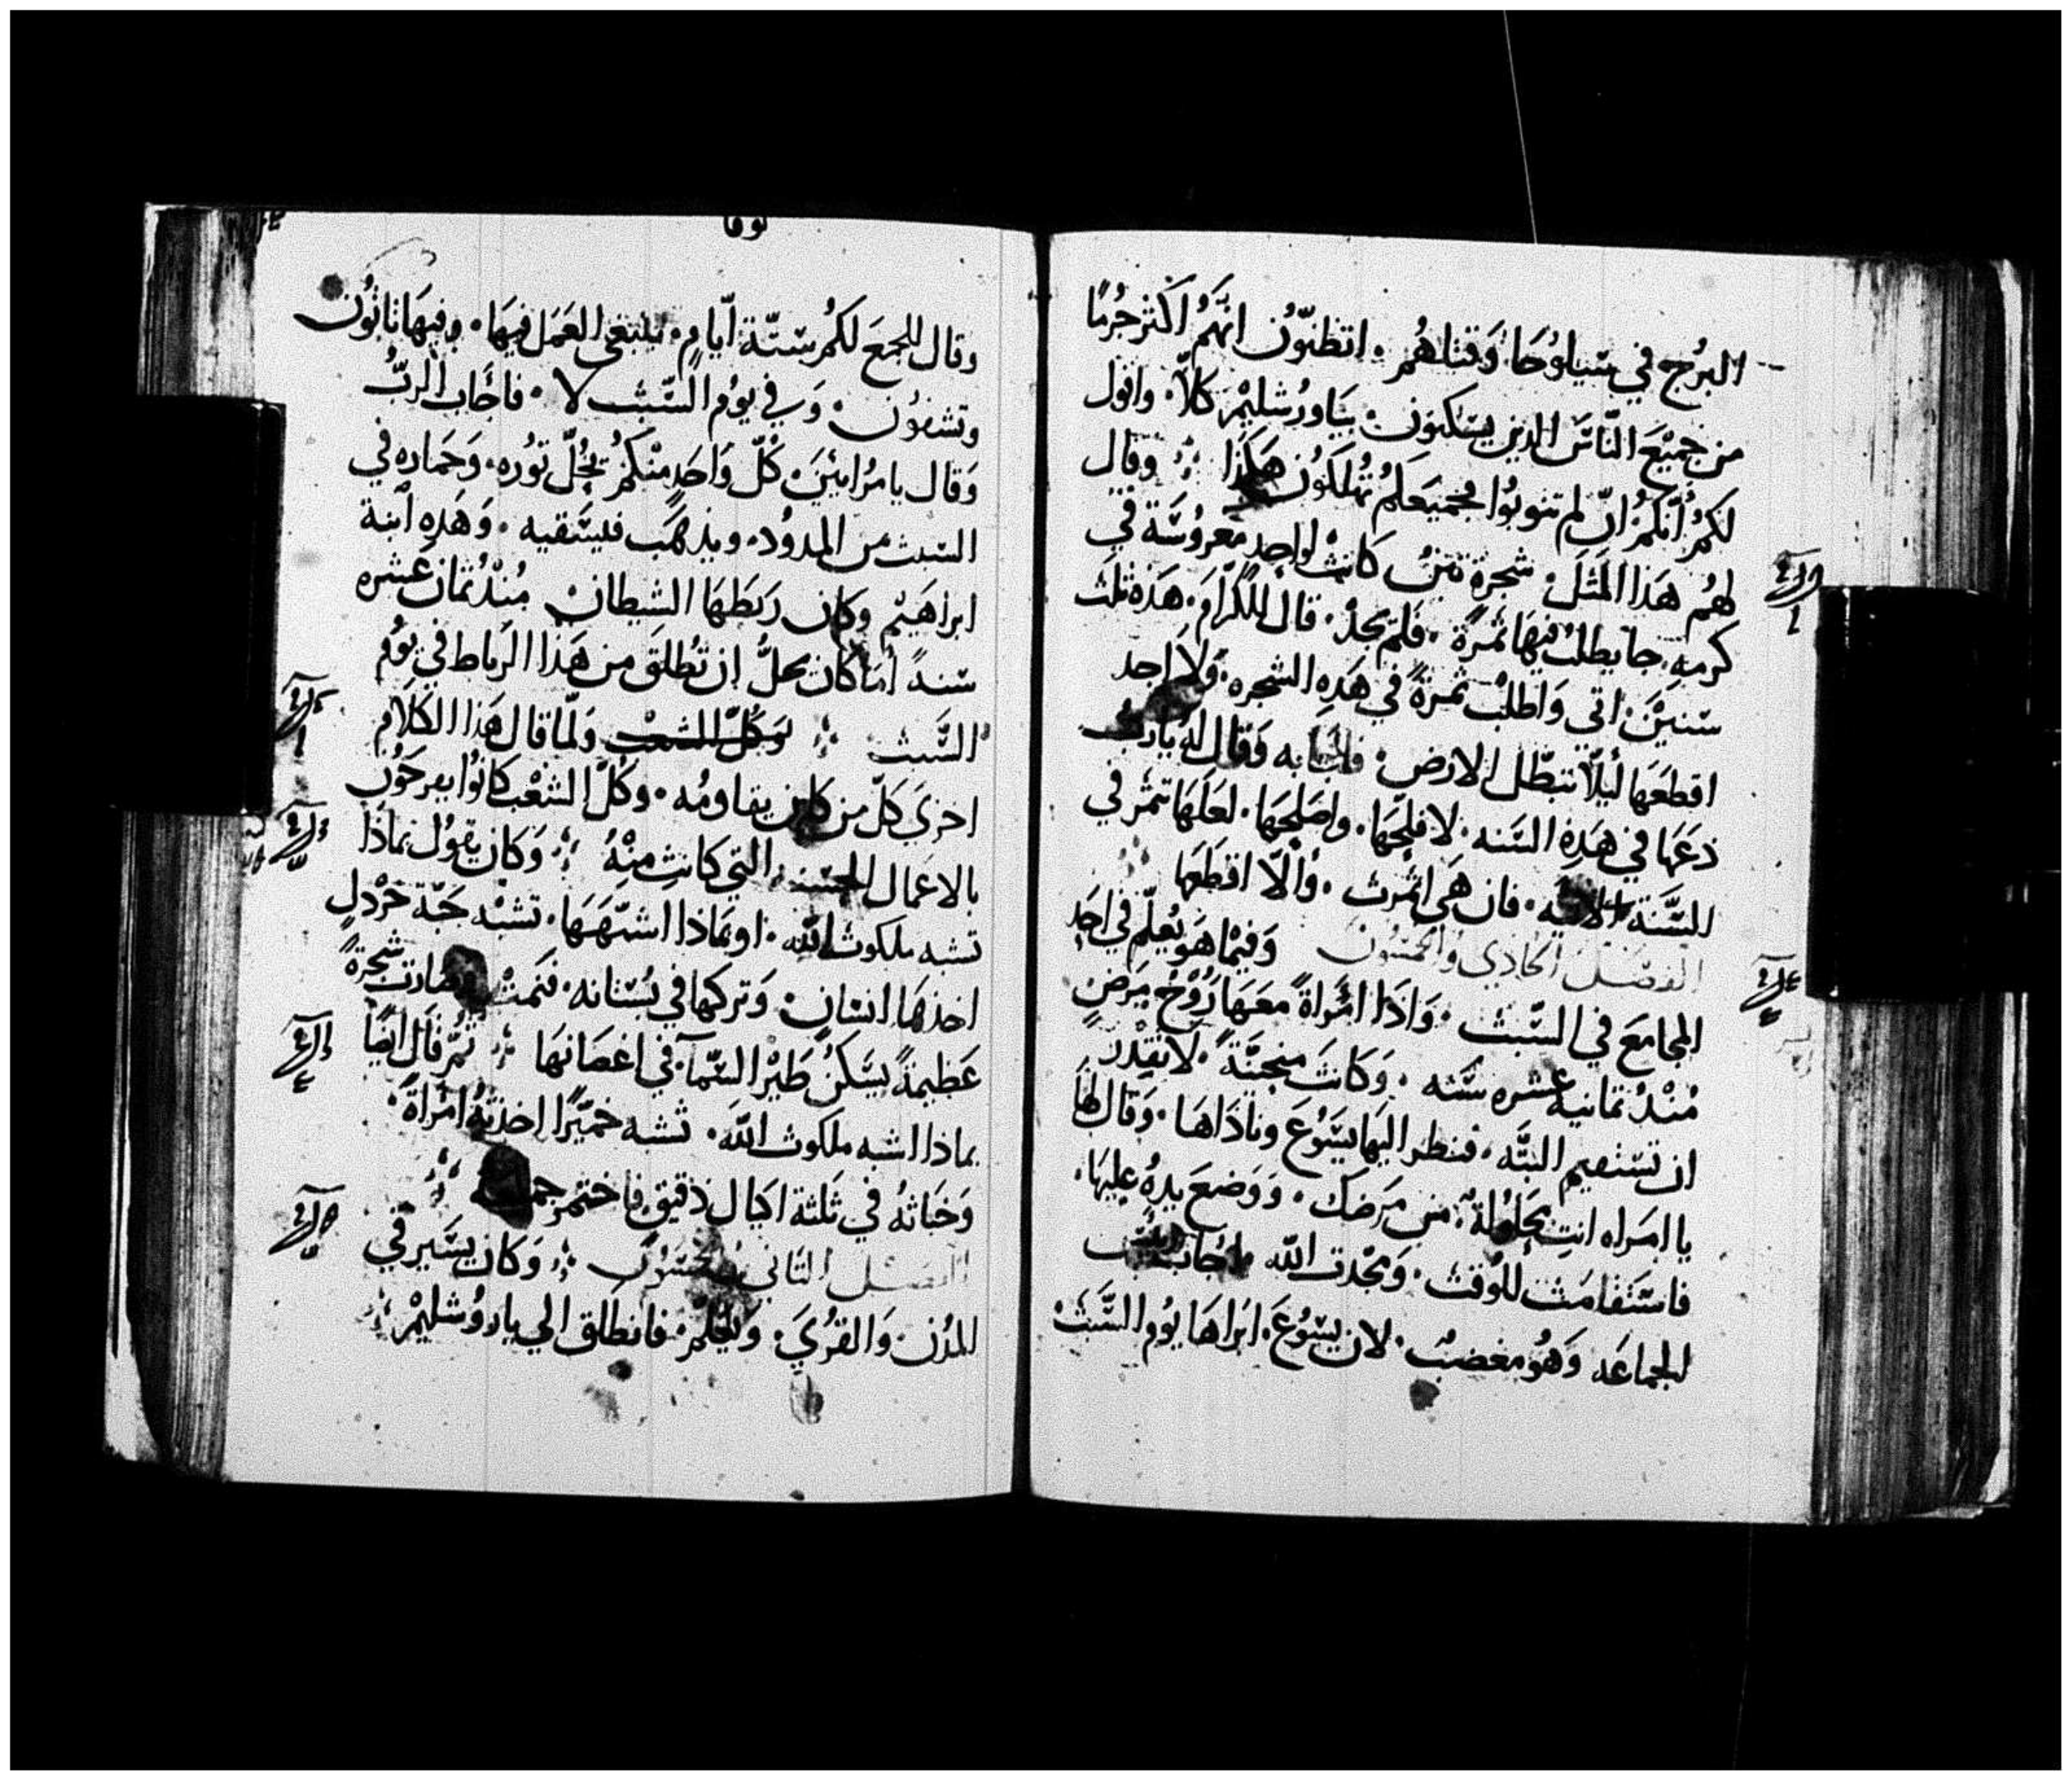 البرُج في سَيلوُحَا وَقتلهُم . اتظنّوُن انهَّمُ اكثر جُرمًا
من جميْعَ النّاسَ الدين يسَكنوَن بيَاورُشليْم كلاّ . واقول
لكمُ انكمُ انّ لم تتوبوُا فجميعَكمُ تُهلكوُن هكَذَا ⁘ وقال
لهُم هَذا المَثلَ . شجرة تينُ كَانتْ لواحدٍ معروُسَة في
كرمهِ . جا يطلبُ فيهَا ثمرَةً . فلم يجدْ . قال للكرّامَ . هَذه ثلثَ
سَنيَن . اتي وَاطلبُ ثمرَةً في هَدهِ الشجره . وَلا اجد
اقطعَها ليَلاّ تبطّل الارَض . فاجَابه وَقال له يا ربُ
دعَهَا في هَدهِ السَنه . لافلحَّهَا . واصَلحَهَا . لعَلهَا تثمر في
السَّنة الاتيه . فان هَي اثمرَث . وَالّا اقطعَهَا
الفصَل الحَادي وَالخمسُون وَفيمْا هوَ يعُلّم في احَد
المجامعَ في السَّبث . وَادَا امُراةً معَهَا رُوُحْ مرَضٍ
مُنْدُ ثمانيه عشره سَنه . وَكانتَ منحنيَةً . لا تقدْر
ان تسَتقيم البتَّه . فنطر اليهَا يسَوُعَ وناداهَا . وَقال لهَا
يا امرَاه انتِ محَلوُلةْ من مَرضَك . وَوَضعَ يدهُ عليهَا .
فاسَتقامَت للوُقث . وَمجَّدت الله فاجاب رئيس
الجماعَه وَهوُ مغضبٌ . لان يسَوُعَ . ابرَاهَا يوُم السَّبَثْ
لوقا
وقال للجمعَ لكمُ سَتّة ايّامٍ . ينبغي العَمَل فيهَا . وفيهَا تاتوُن
وتشفوُن . وَ في يوُم السَّبث لا . فاجَاب الربُّ
وَقال يا مرُاييَن . كلّ وَاحَدٍ منْكمُ يحُلّ توُره . وَحمَاره في
السَبث من المدوُد . ويذهَب فيسَقيه . وَهَدهِ ابنة
ابراهَيْم وكان ربَطهَا الشيطان . مُنْدُ ثمان عَشره
سَنةً امَا كان يحلُّ ان تُطلقَ من هَذا الربَاط في يوُم
السَّبث ⁘ وَكلّ الشعبْ وَلمّا قال هَذا الكلَام
اخزيَ كلّ من كان يقاومُه . وَكلُّ الشعْب كانوُا يفرحَوُن
بالاعَمال الحسَنه التي كانتِ منْهُ ⁘ وَكان يقوُل بمَاذَا
تشبه ملكوث الله . او بمَاذا اشبّههَا . تشبْه حَبّة خرْدلٍ
اخذهَا انسَان . وَتركها في بُستانه . فنمَتْ وصَارت شجرةً
عَظيمةً يسَكنُ طَيْر السَّمآ . في اغصَانهَا ⁘ ثمّ قال ايضًا
بماذا اشبه ملكوث الله . تشبه خميّرًا اخذتهُ امرَاةً .
وَخبَاتهُ في ثلثة اكيال دقيق فاختمر جميعه
الفصَل الثاني والخمسُون ⁘ وَكان يسَير في
المدُن . وَالقرُيَ . وَيعُلمّ . فانطلق الي ياروُشليْم ⁘